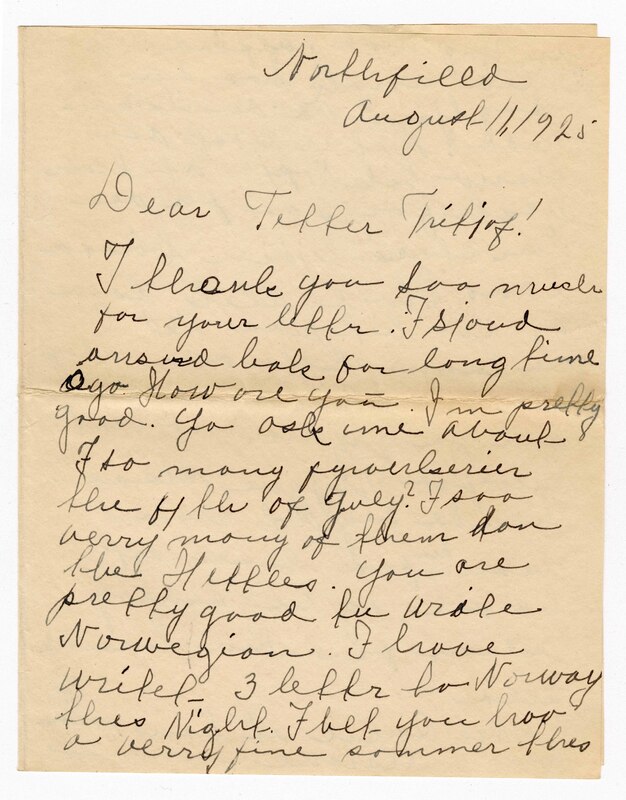 Northfield
August 11, 1925
Dear Tetter Tritjof!
I thank you soo much
for your letter. I sjoud
ansurd bak for long time
ago How are you. I'm pretty
good. Yo ask me about
I so many fyrverkerier
the 4 th of Yuly? I soo
verry many of them
the Hettles. You are
pretty good tu write
Norwegian. I have
writet 3 letter to Norway
thes Night. I bet you hav
a verry fine sommer thes